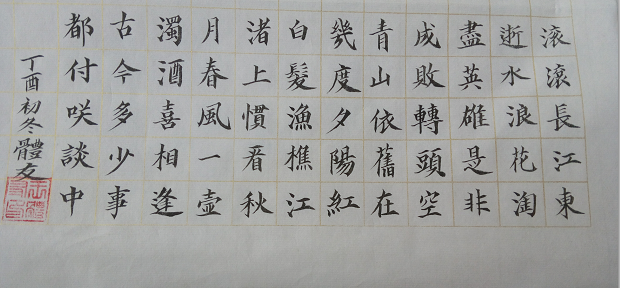 滚滚長江東
逝水浪花淘
盡英雄是非
成敗轉頭空
青山依舊在
幾度夕陽紅
白髮漁樵江
渚上慣看秋
月春風一壺
濁酒喜相逢
古今多少事
都付咲談中
丁酉初冬體